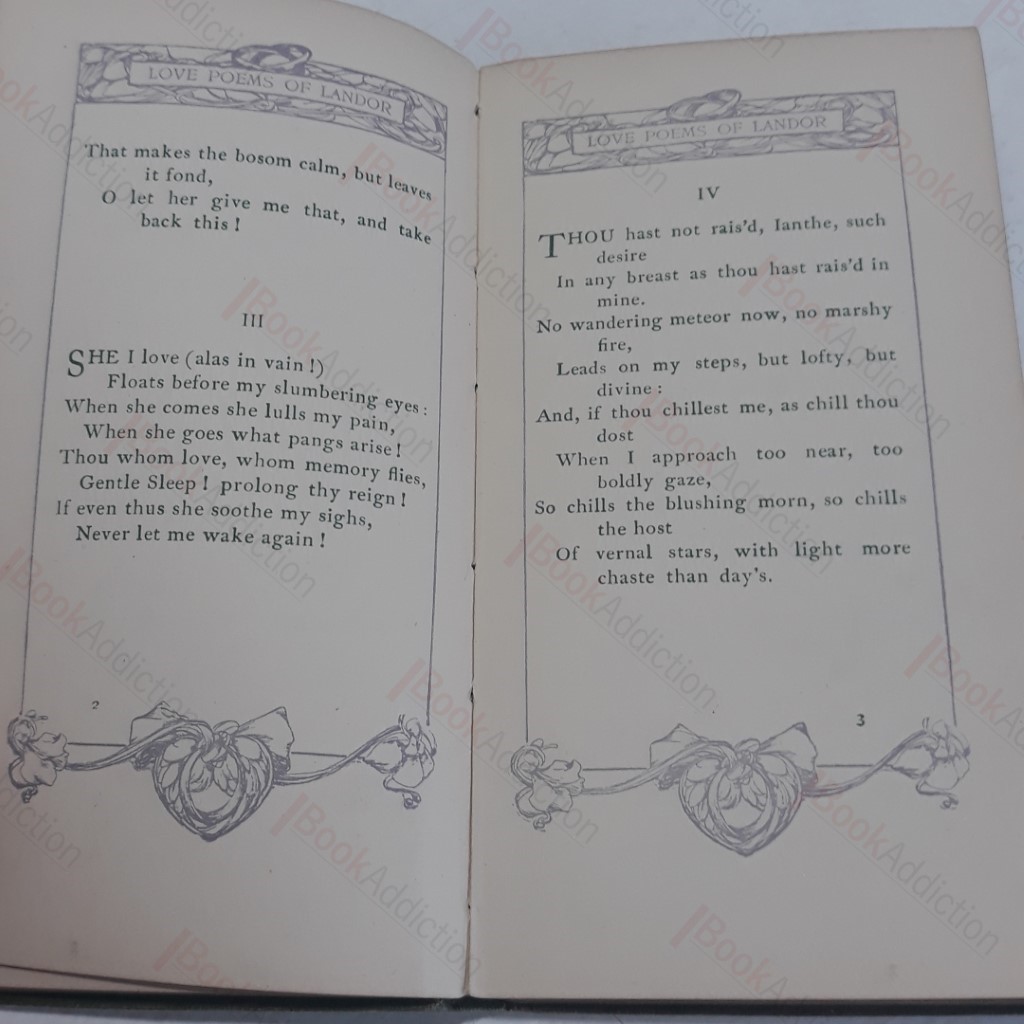 LOVE POEMS OF LANDOR
That makes the bosom calm, but leaves
it fond,
O let her give me that, and take
back this !
III
SHE I love (alas in vain !)
Floats before my slumbering eyes :
When she comes she lulls my pain,
When she goes what pangs arise !
Thou whom love, whom memory flies,
Gentle Sleep ! prolong thy reign !
If even thus she soothe my sighs,
Never let me wake again !
2
LOVE POEMS OF LANDOR
IV
THOU hast not rais'd, Ianthe, such
desire
In any breast as thou hast rais'd in
mine.
No wandering meteor now, no marshy
fire,
Leads on my steps, but lofty, but
divine :
And, if thou chillest me, as chill thou
dost
When I approach too near, too
boldly gaze,
So chills the blushing morn, so chills
the host
Of vernal stars, with light more
chaste than day's.
3
BookAddiction